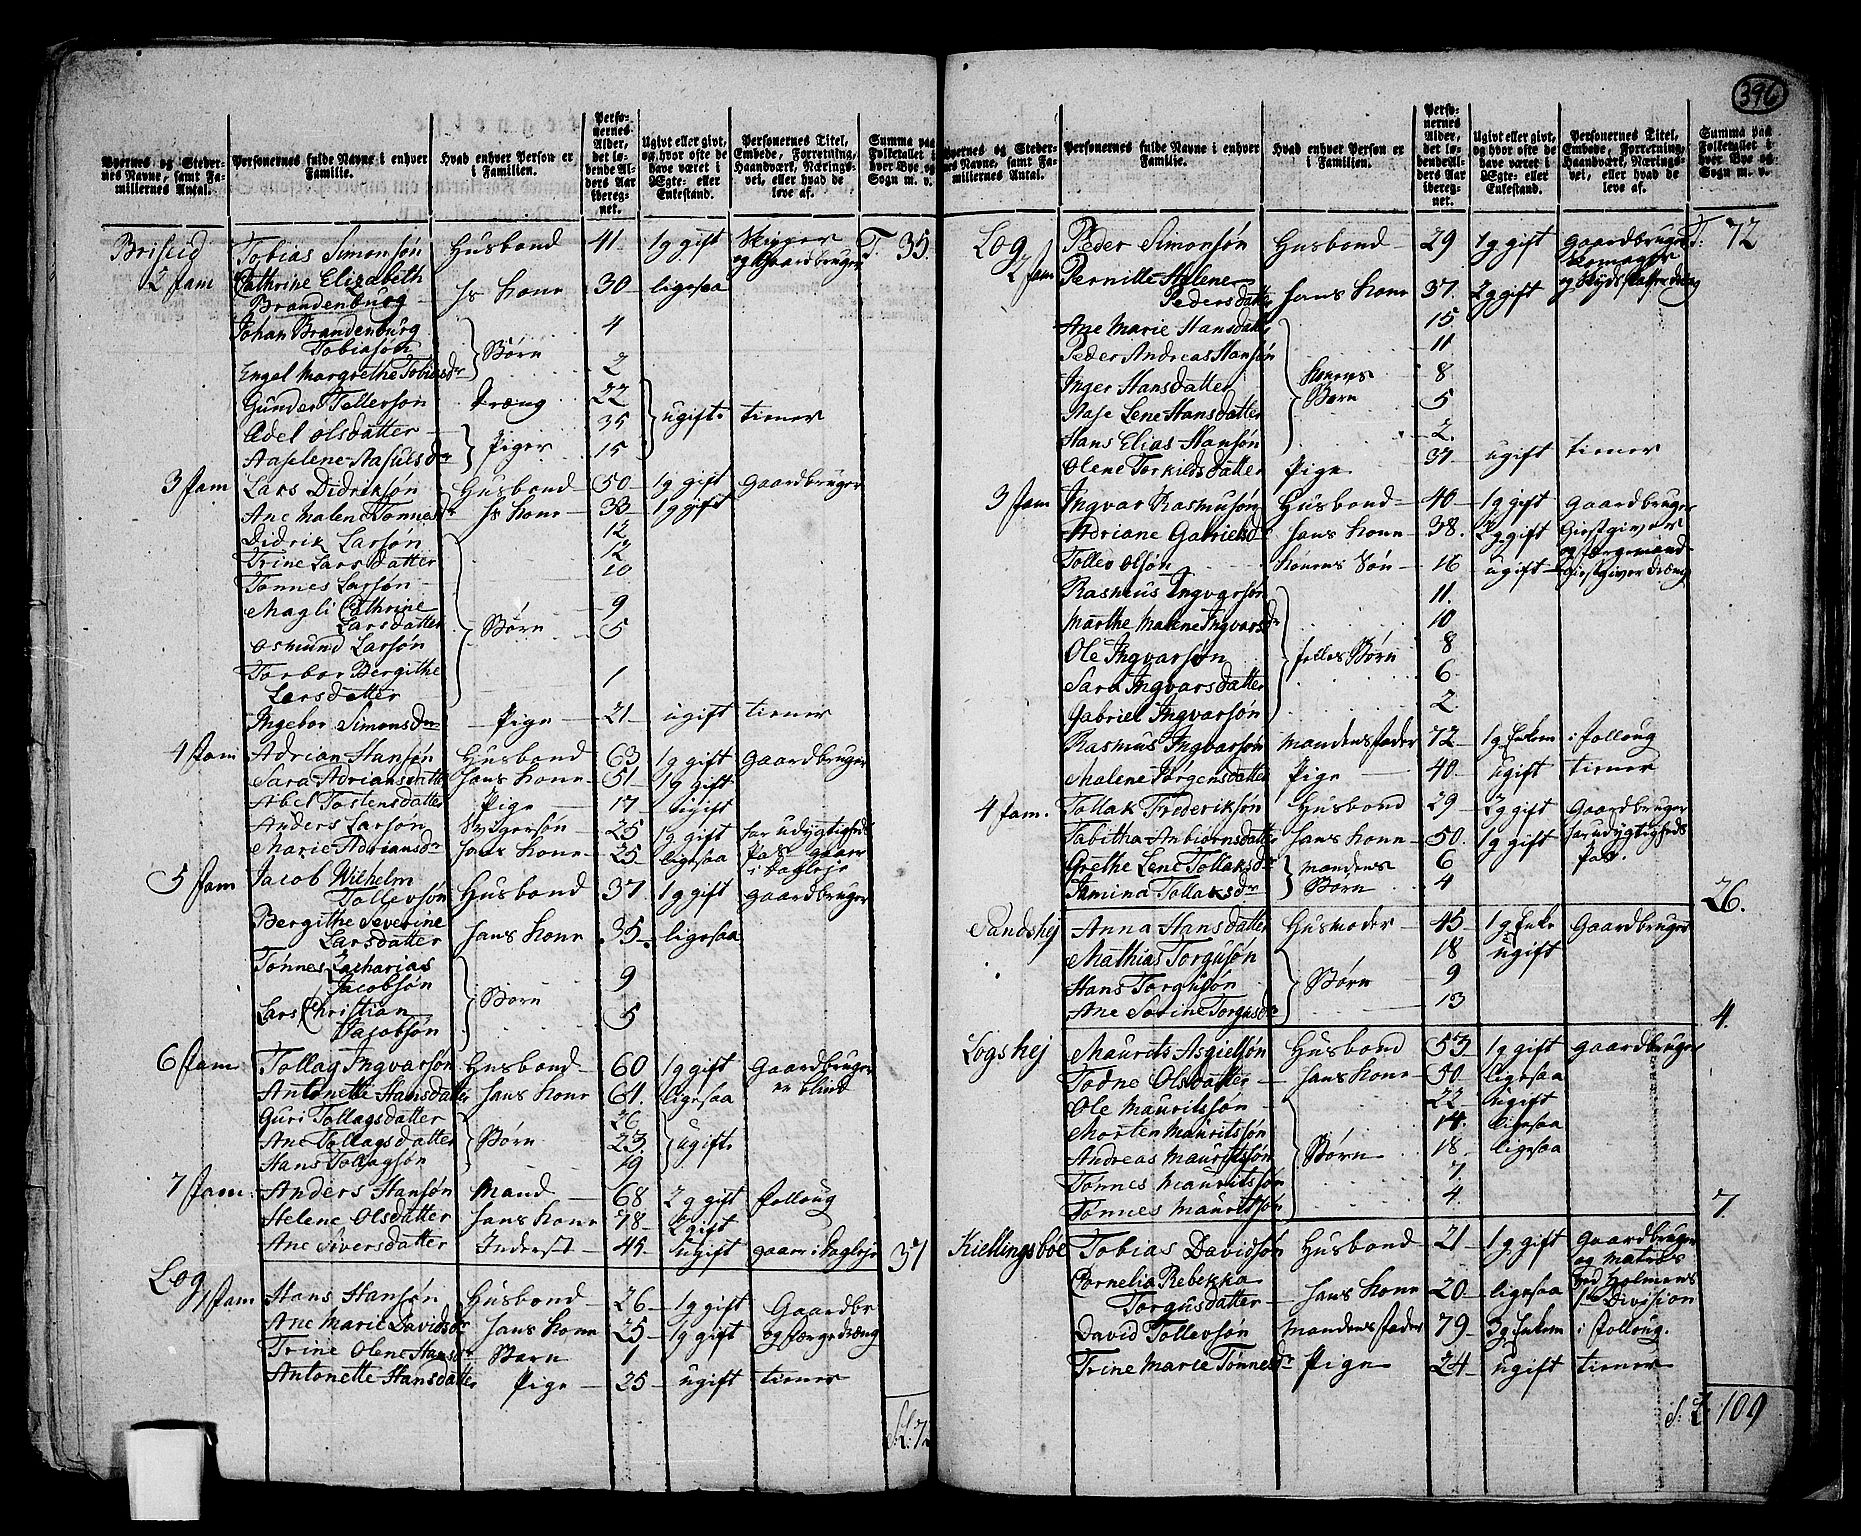 396
Byernes og Stedernes Navne, samt Familiernes Antal. | Personernes fulde Navne i enhver Familie. | Hvad enhver Person er i Familien. | Personernes Alder, det løbende Alders Aar iberegnet. | Ugivt eller givt, og hvor ofte de have været i Ægte- eller Enkestand. | Personernes Titel, Embede, Forretning, Haandværk, Næringsvei, eller hvad de leve af. | Summa paa Folketallet i hver Bye og Sogn m. v.
Tobias Simonsøn Husbond 41 1g gift Skipper og Gaardbruger T. 35
2 fam Cathrine Elizabeth
Brandenburg hs Kone 30 ligesaa
Johan Brandenburg
Tobiasøn 4
Børn
Engel Margrethe Tobiasdr 2
Gunder Tollersøn Dræng 22
Adel Olsdatter 35 ugifte tiener
Aaselene Aasulsdr Piger 15
3 fam Lars Didriksøn Husbond 50 1g gift Gaardbruger
Ane Malene Tønnesdr hs Kone 33 1g gift
Didrik Larsøn 12
Trine Larsdatter 12
Tønnes Larsøn 10
Magli Cathrine
Larsdatter 9
Børn
Osmund Larsøn 5
Torbor Bergithe
Larsdatter 1
Ingebor Simonsdr Pige 21 ugift tiener
4 fam Adrian Hansøn Husbond 63 1g gift Gaardbruger
Sara Adriansdatter hans Kone 51 1g gift
Abel Tostensdatter Pige 17 ugift
Anders Larsøn Svigersøn 25 1g gift har udygtigheds
Marie Adriansdr hans Kone 25 ligesaa Pas gaaer
i Dagleje
5 fam Jacob Wilhelm
Tollevsøn Husbond 37 1g gift gaardbruger
Bergithe Severine
Larsdatter hans Kone 35 ligesaa
Tønnes Zacharias
Jacobsøn 9
Børn
Lars Christian
Jacobsøn 5
6 fam Tollag Ingvarsøn Husbond 60 1g gift Gaardbruger
Antonette Hansdatter hans Kone 61 ligesaa er blind
Guri Tollagsdatter 26
Ane Tollagsdatter Børn 23 ugifte
Hans Tollagsøn 19
7 fam Anders Hansøn Mand 68 2g gift Folloug
Helene Olsdatter hans Kone 78 2 gift
Ane Siversdatter Inderst 45 ugift gaaer i Dagleje 37
Log
1 fam Hans Hansøn Husbond 26 1g gift Gaardbr
Ane Marie Davidsdr hans Kone 25 1g gift og færgedræng
Trine Olene Hansdr Barn 1
Antonette Hansdatter Pige 25 ugift tiener
Byernes og Stedernes Navne, samt Familiernes Antal. | Personernes fulde Navne i enhver Familie. | Hvad enhver Person er i Familien. | Personernes Alder, det løbende Alders Aar iberegnet. | Ugivt eller givt, og hvor ofte de have været i Ægte- eller Enkestand. | Personernes Titel, Embede, Forretning, Haandværk, Næringsvei, eller hvad de leve af. | Summa paa Folketallet i hver Bye og Sogn m. v.
Log Peder Simonsøn Husbond 29 1g gift Gaardbruger T: 72
2 fam Pernille Helene
Pedersdatter hans Kone 37 2g gift
Ane Marie Hansdatter 15
Peder Andreas Hansøn 11
Inger Hansdatter Konens 8
Aase Lene Hansdatter Børn 5
Hans Elias Hansøn 2
Olene Torkildsdatter Pige 37 ugift tiener
3 fam Ingvar Rasmusøn Husbond 40 1g gift Gaardbruger
Adriane Gabrielsdr hans Kone 38 2g gift Giestgiver
og færgemand
Tollev Olsøn Konens Søn 16 ugift Giestgiver dræng
Rasmus Ingvarsøn 11
Marthe Malene Ingvarsdr 10
Ole Ingvarsøn fælles Børn 8
Sara Ingvarsdatter 6
Gabriel Ingvarsøn 2
Rasmus Ingvarsøn Mandens fader 72 1g Enkem i Folloug
Malene Jørgensdatter Pige 40 ugift tiener
4 fam. Tollak Frederiksøn Husbond 29 2g gift Gaardbruger
Tabitha Anbiørnsdatter hans Kone 50 1g gift har udygtigheds
Pas.
Grethe Lene Tollaksdr Mandens 6
Jamina Tollaksdr Børn 4
26.
Sandshej Anna Hansdatter Husmoder 45 1g Enke Gaardbruger
Mathias Torgusøn 18 ugift
Hans Torgusøn Børn 9
Ane Sorine Torgusdr 13
4.
Logshej Maurits Asgielsøn Husbond 53 1g gift gaardbruger
Todne Olsdatter hans Kone 50 ligesaa
Ole Mauritssøn 22 ugift
Morten Mauritsøn 14 ligesaa
Andreas Mauritsøn Børn 18 ligesaa
Tønnes Mauritsøn 7
Tønnes Mauritsøn 4
7.
Kiellingsbøe Tobias Davidsøn Husbond 21 1g gift Gaardbruger
og Matros
Cornelia Rebekka ved Holmens
Torgusdatter hans Kone 20 ligesaa 1 Division
David Tollevsøn Mandens fader 79 3g Enkem i Follug.
Trine Marie Tønnesdr Pige 24 ugift tiener
109